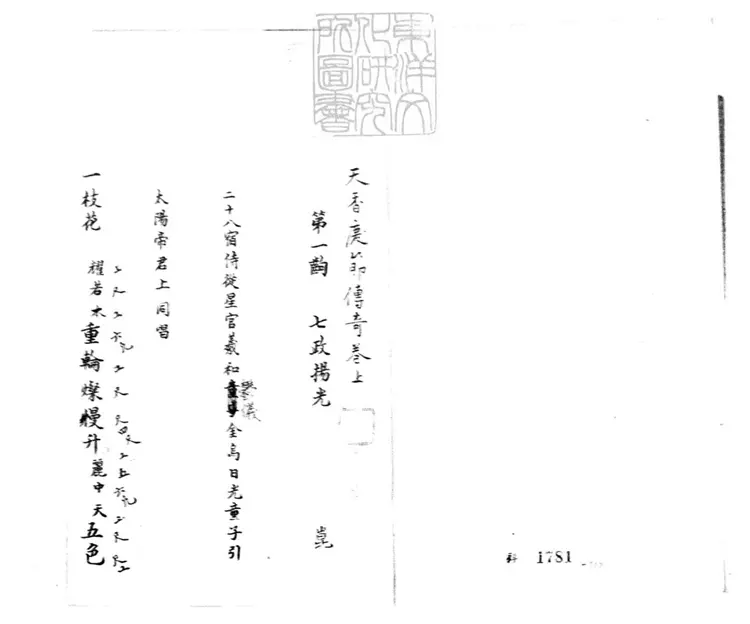 東洋文
化研究
所圖書
天香慶節傳奇卷上
第一齣 七政揚光 崑
二十八宿侍從星官羲和金烏日光童子引
太陽帝君上同唱
一枝花 耀若木重輪燦熳升麗中天五色
1781